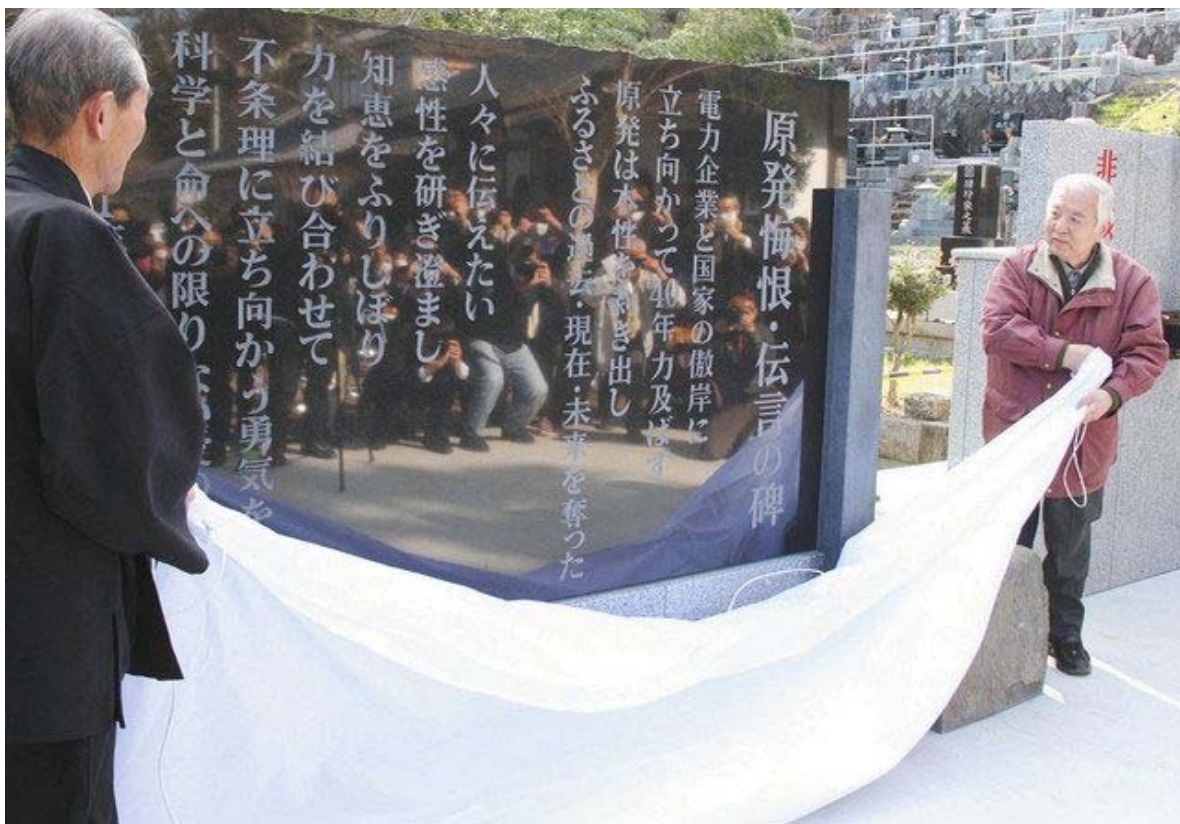 原発悔恨・伝言の碑
電力企業と国家の傲岸に
立ち向かって40年力及ばず
原発は本性を剥き出し
ふるさとの過去・現在・未来を奪った
人々に伝えたい
感性を研ぎ澄まし
知恵をふりしぼり
力を結び合わせて
不条理に立ち向かう勇気を
科学と命への限りない
非